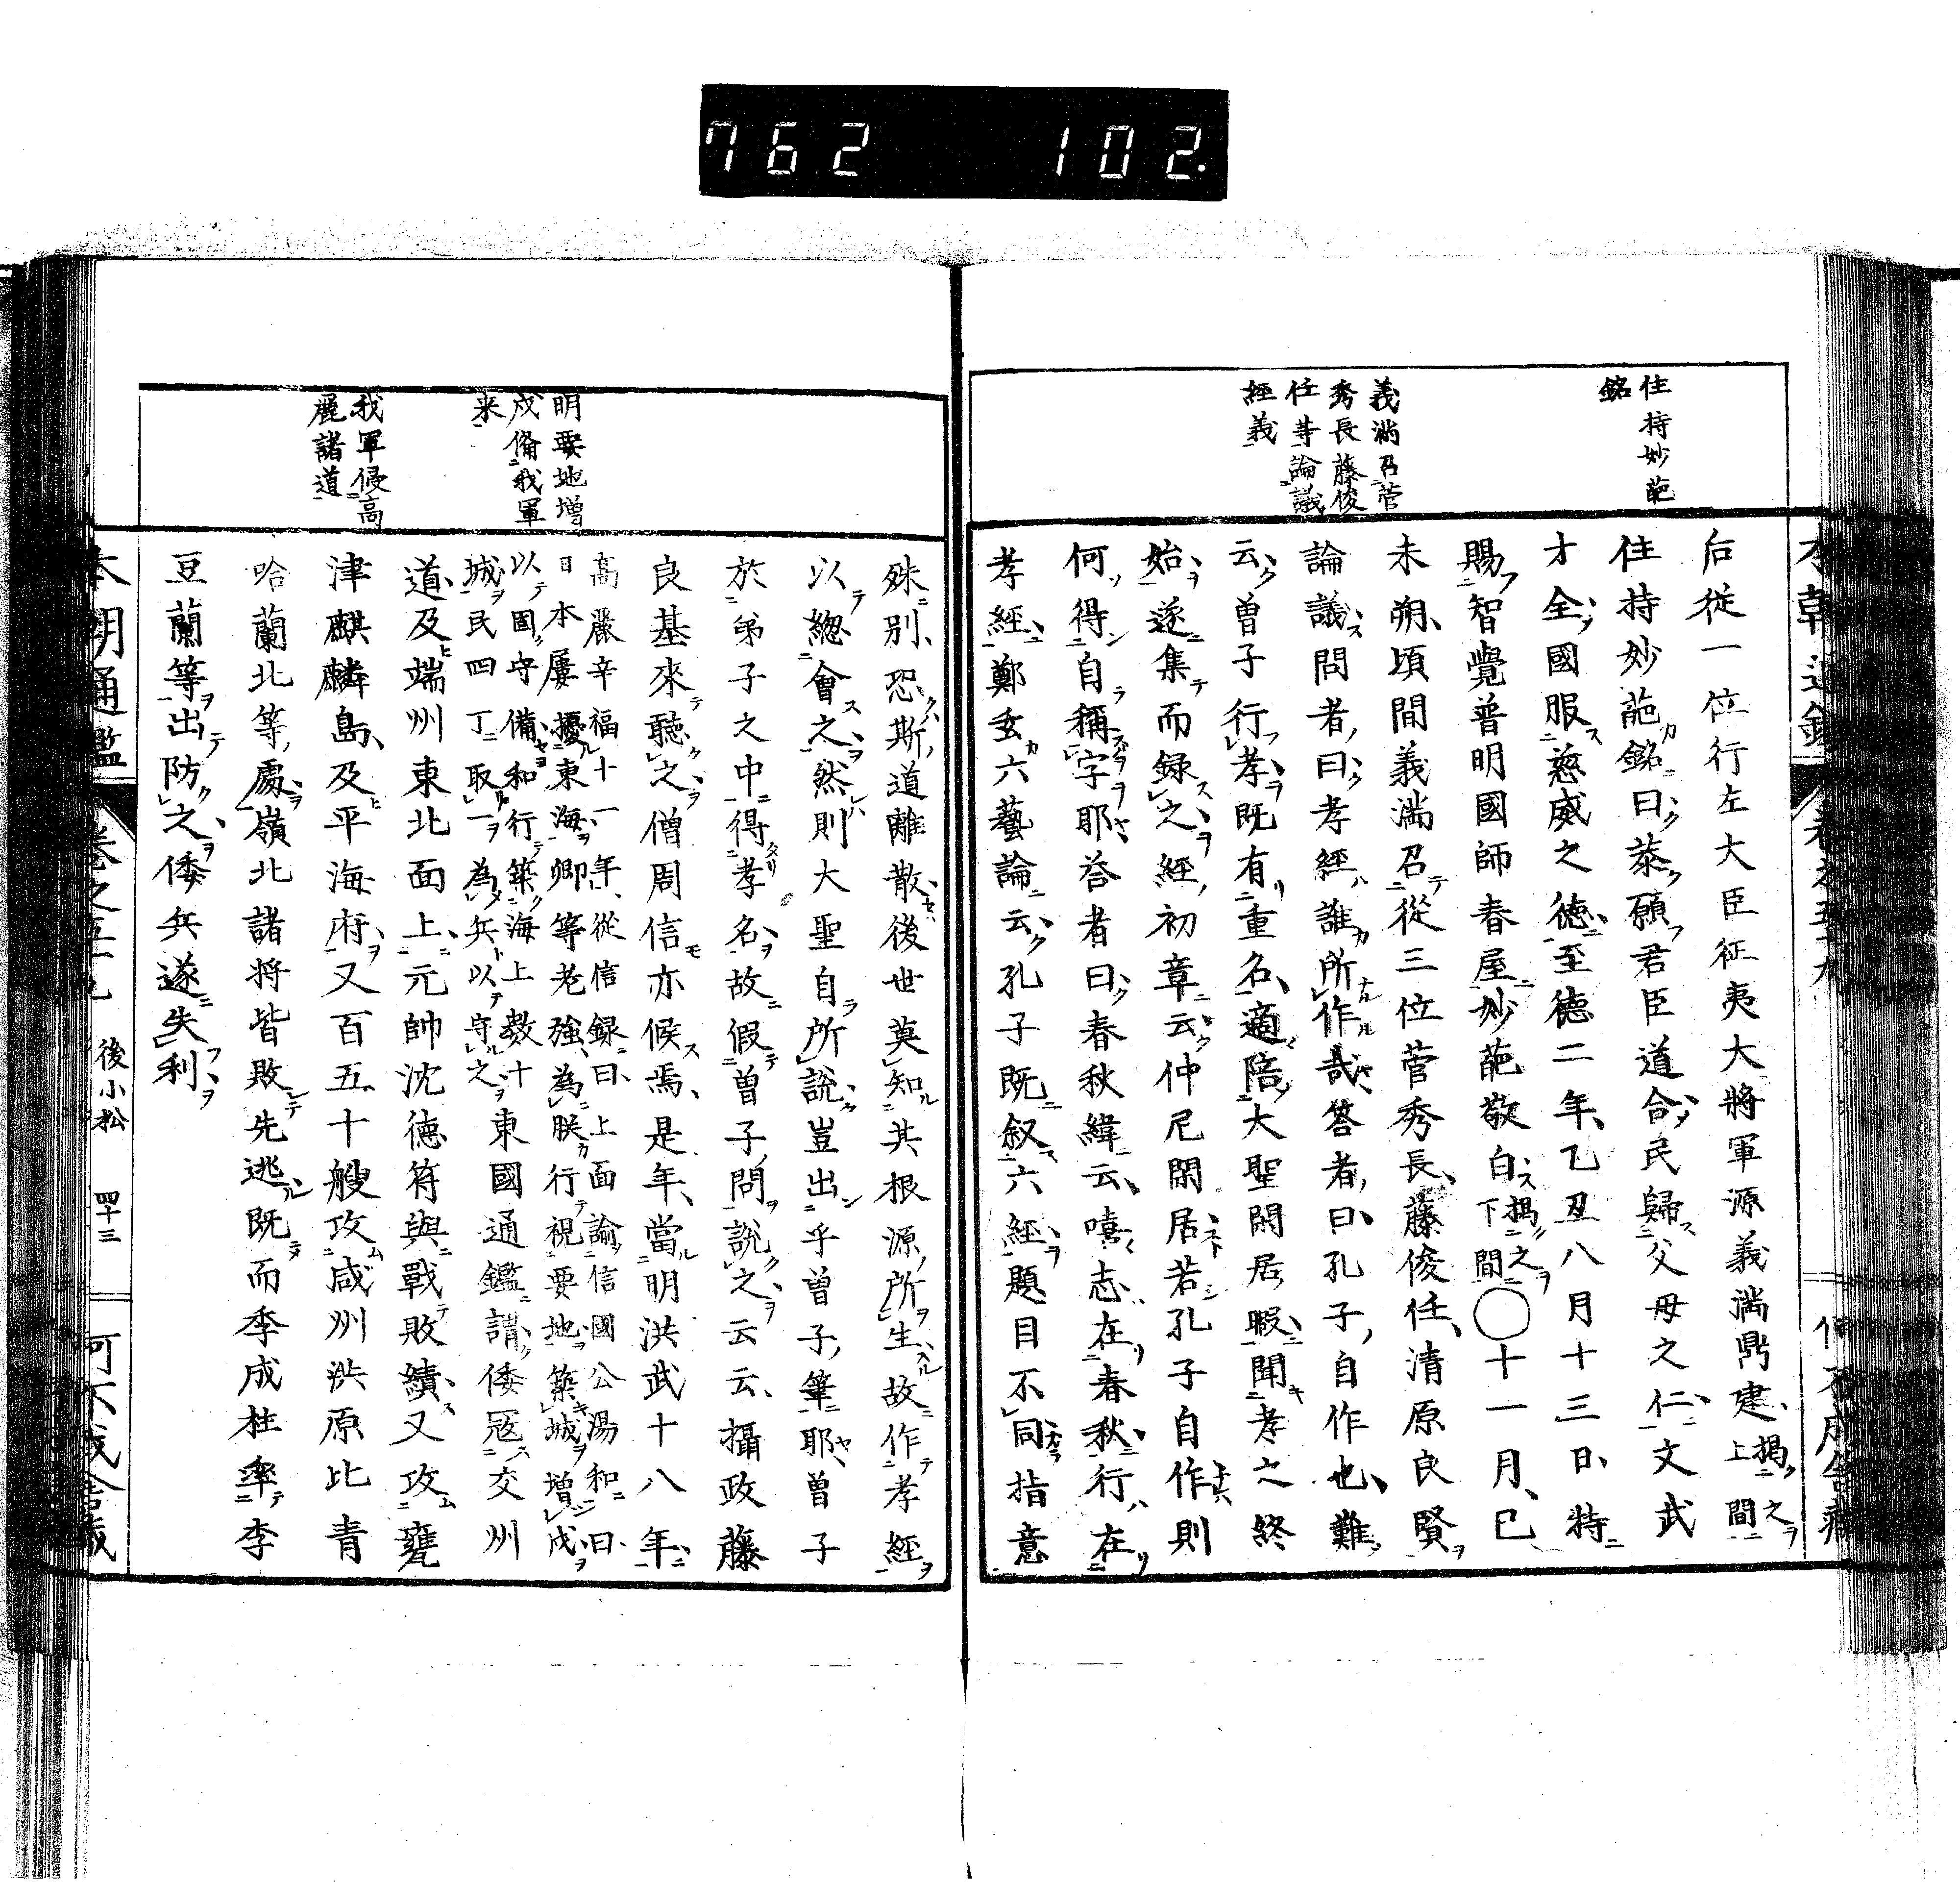 762 102
住持妙葩
銘
義滿召菅
秀長藤俊
任等論議
經義
后從一位行左大臣征夷大將軍源義滿鼎建、揭之上間
住持妙葩銘曰、恭願君臣道合、民歸父母之仁、文武
才全、國服慈威之德、至德二年、乙丑八月十三日、特
賜智覺普明國師春屋妙葩敬白、揭之下間〇十一月、已
未朔、頃間義滿召從三位菅秀長、藤俊任、清原良賢
論議、問者曰、孝經誰所作哉、答者曰、孔子自作也、難
云、曾子行孝、既有重名、適陪大聖閑居暇、聞孝之終
始、遂集而錄之、經初章云、仲尼閑居、若孔子自作、則
何得自稱字耶、荅者曰、春秋緯云、嘻志在春秋、行在
孝經、鄭玄六藝論云、孔子既叙六經、題目不同、指意
明要地增
戍備我軍
来
我軍侵高
麗諸道
殊別、恐斯道離散、後世莫知其根源所生、故作孝經
以總會之、然則大聖自所說、豈出乎曾子筆耶、曾子
於弟子之中、得孝名、故假曾子問、說之云云、攝政藤
良基來聽之、僧周信亦候焉、是年、當明洪武十八年、
高麗辛禑十一年、從信錄曰、上面諭信國公湯和曰、
日本屢擾東海、卿等老強、為朕行視要地、築城增戍、
以固守備、和行築海上數十
城、民四丁取一為兵、以守之、東國通鑑謂、倭冦交州
道、及端州東北面上、元帥沈德符與戰敗績、又攻甕
津麒麟島、及平海府、又百五十艘攻咸州洪原北青
哈蘭北等處、嶺北諸将皆敗先逃、既而李成桂率李
豆蘭等出防之、倭兵遂失利、
本朝通鑑 卷之 後小松 四十三